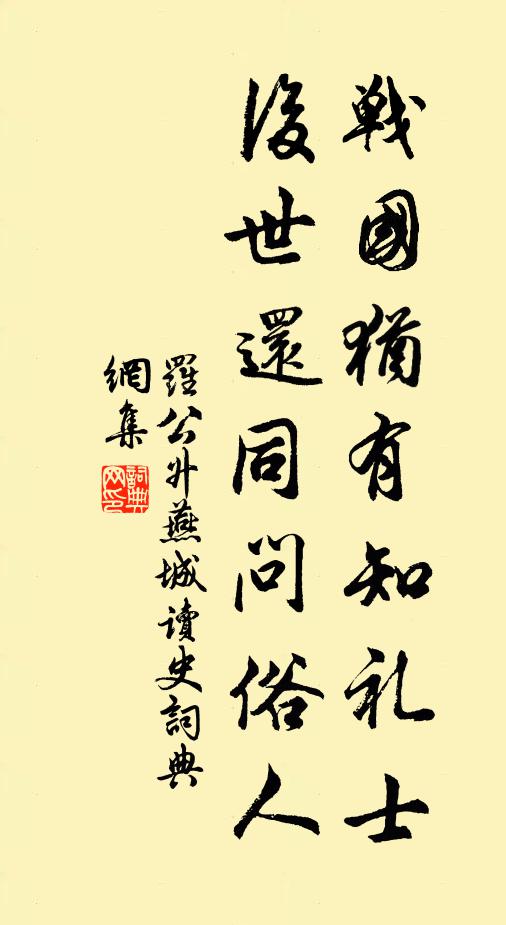 戦國猶有知礼士
後世還同問俗人
羅公升燕城讀史詞典
網集
詞典網印